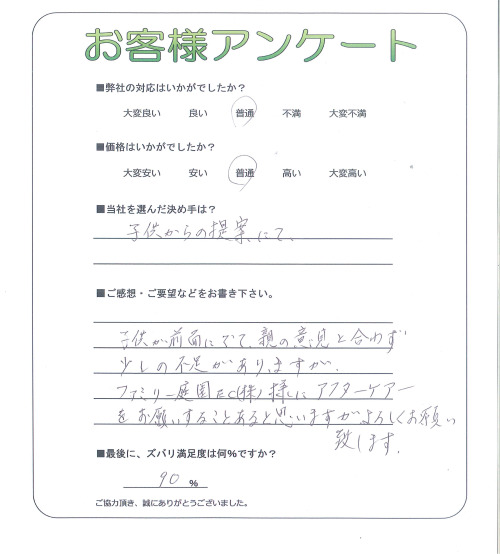 お客様アンケート
■弊社の対応はいかがでしたか？
大変良い 良い 普通 不満 大変不満
■価格はいかがでしたか？
大変安い 安い 普通 高い 大変高い
■当社を選んだ決め手は？
子供からの提案にて、
■ご感想・ご要望などをお書き下さい。
子供が前面にでて、親の意見と合わず
少しの不足がありますが、
ファミリー庭園 (株)様に アフターケアー
をお願いすることあると思いますがよろしくお願い
致します。
■最後に、ズバリ満足度は何%ですか？
90 %
ご協力頂き、誠にありがとうございました。